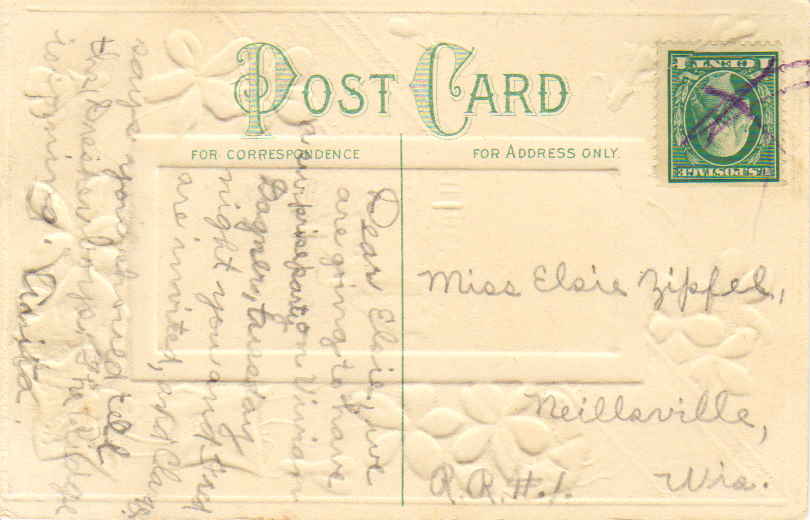 POST CARD
FOR CORRESPONDENCE
FOR ADDRESS ONLY.
U.S. POSTAGE
1 CENT 1
Dear Elsie, we
are going to have
a surprise party on Vivian
Wagner, Tuesday
night you and Fred
are invited, and Clara
says you should tell
the Dresden boys. The
is coming.
Anita.
Miss Elsie Zipfel,
Neillsville,
R.R.#.1. Wis.